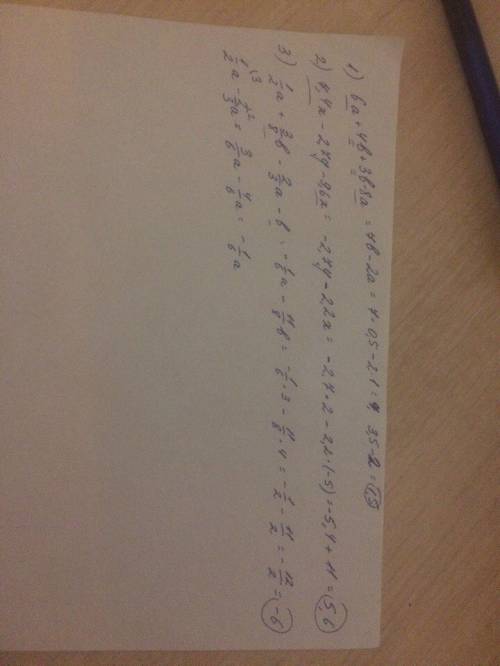 1) 6a + 4b + 3b - 8a = 7b - 2a = 7 · 0,5 - 2 · 1 = 3,5 - 2 = 1,5
2) 7,4x - 2,7y - 9,6x = -2,7y - 2,2x = -2,7 · 2 - 2,2 · (-5) = -5,4 + 11 = 5,6
3) 1/2 a + 3/8 b - 2/3 a - b = -1/6 a - b = -1/6 · 3 - · 4 = -1/2 - 11/2 = -12/2 = -6
1/2 a - 2/3 a = 3/6 a - 4/6 a = -1/6 a